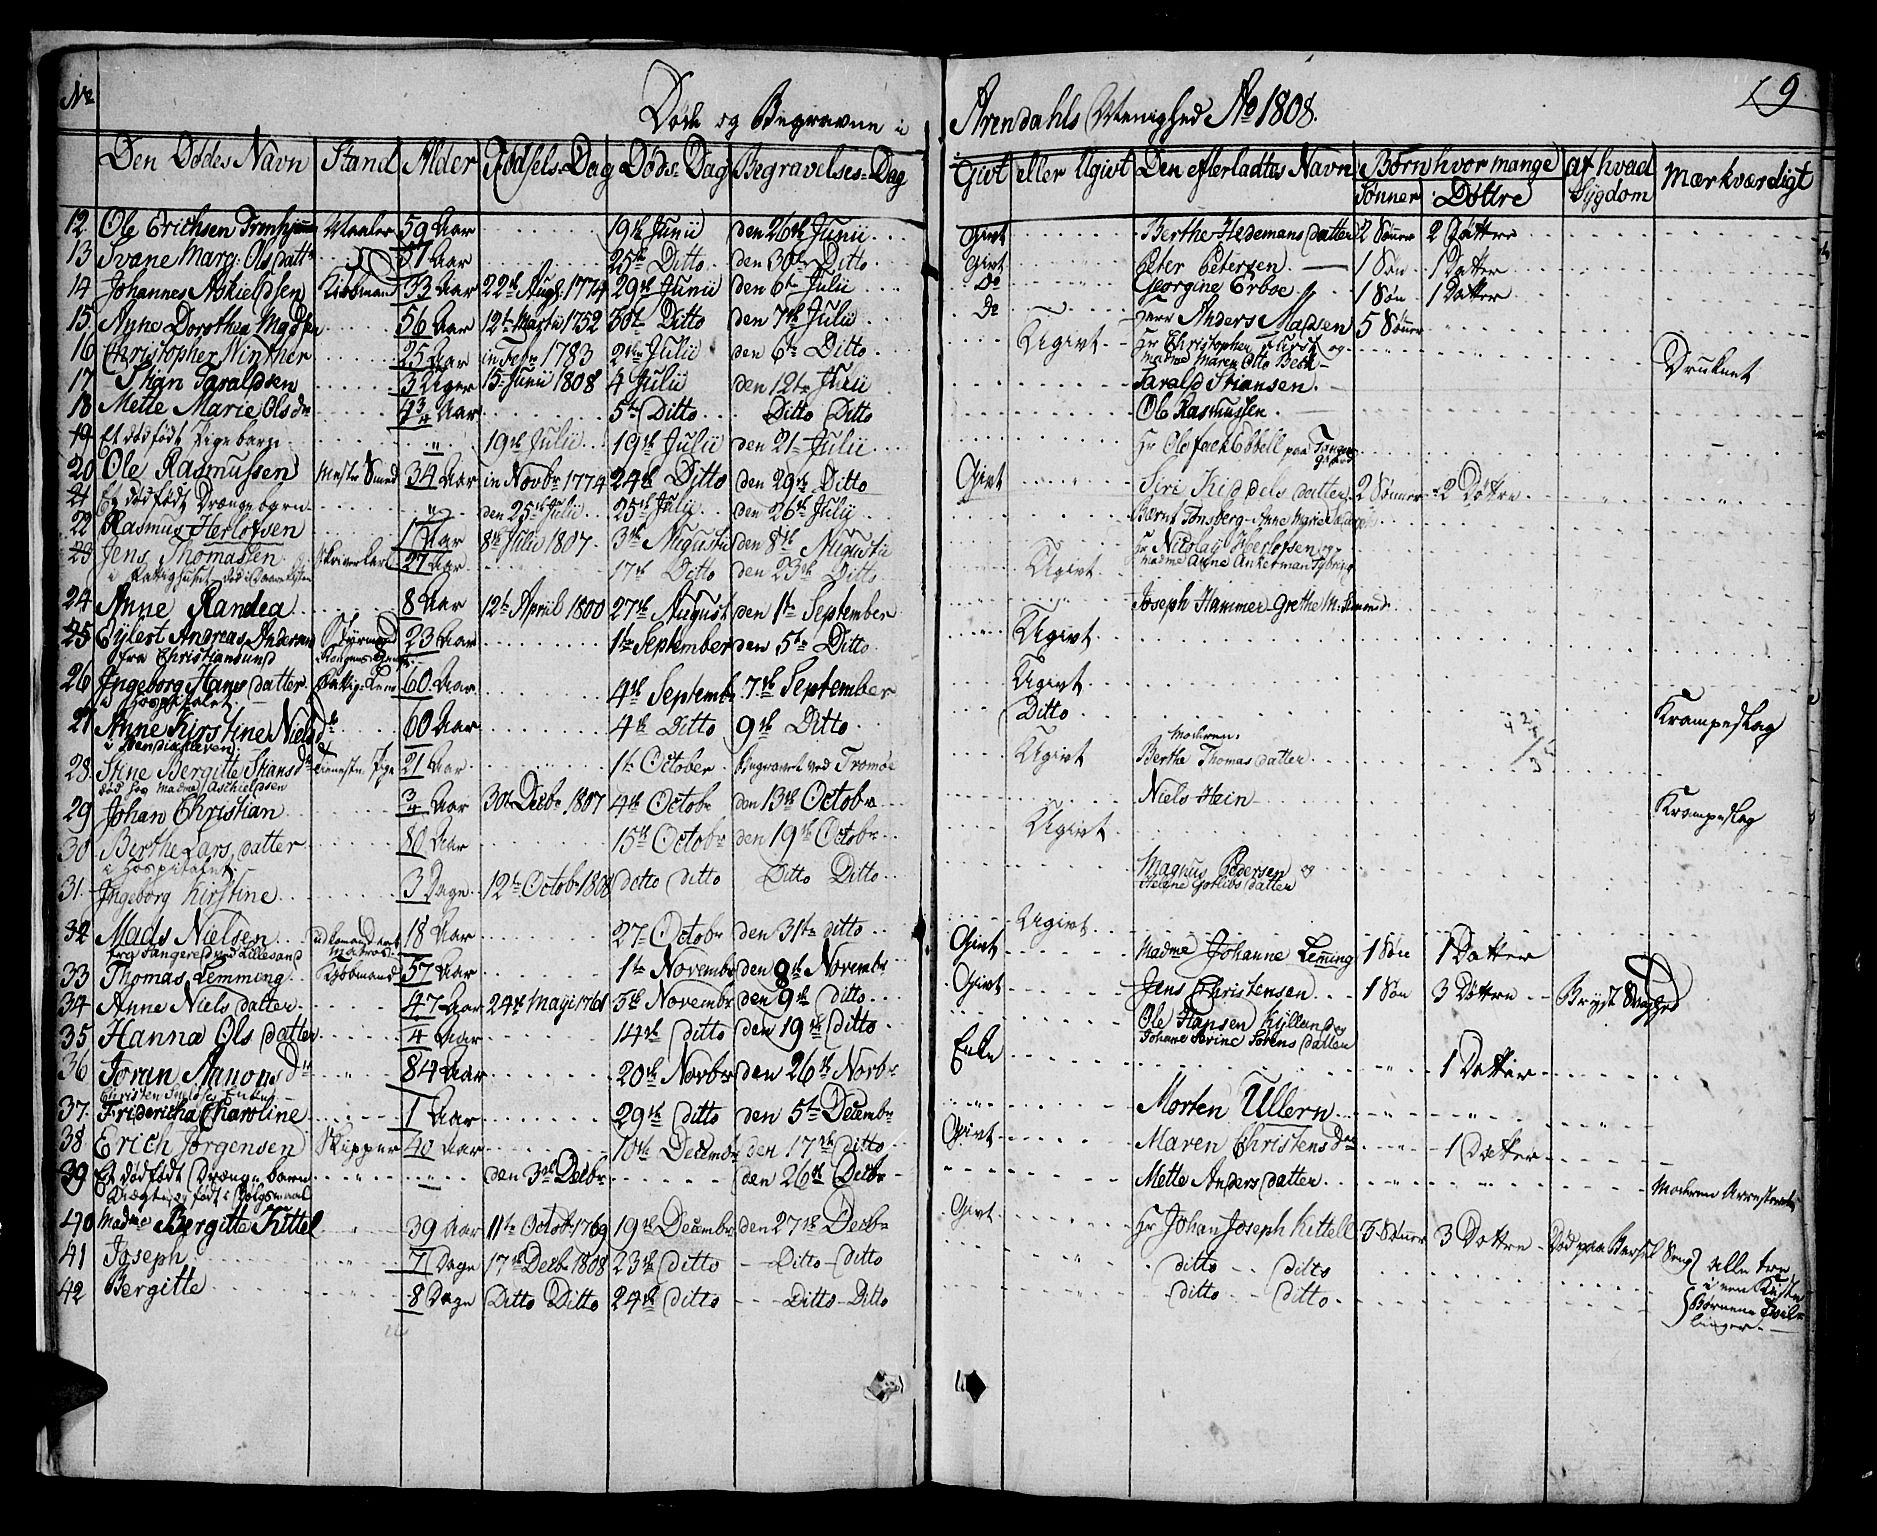 No
Døde og Begravne i Arendahls Menighed Ao 1808.
19
Den Dødes Navn Stand Alder Fødsels-Dag Døds-Dag Begravelses-Dag Givt eller Ugivt Den efterladtes Navn Børn hvor mange af hvad Mærkværdigt
Sønner Døttre Sygdom
12. Ole Erichsen Mahler 59 Aar 19de Junii den 26de Junii Givt Berthe Hedemans datter 2 Sønner 2 Døttre
13 Svane Marg. Ols datt. 57 Aar 25de Ditto den 30te Ditto Givt Peter Petersen 1 Søn 1 Datter
14 Johannes Askieldsen Kiøbmand 33 Aar 22de Aug. 1774 29de Junii den 6te Julii Do Georgine Erboe 1 Søn 1 Datter
15. Anne Dorothea Madsen 56 Aar 12te Martii 1752 30te Ditto den 7de Julii Do Herr Anders Madsen 5 Sønner
16 Christopher Winther 25 Aar 1783 2den Julii den 6te Ditto Ugivt Hr Christopher Hirst og Druknet
Madme Maren Otto Beck
17. Stian Taraldsen 3 Uger 15 Junii 1808 4 Julii den 12te Julii Tarald Stiansen
18 Mette Marie Olsdr 4 3/4 Aar 5te Ditto Ditto Ditto Ole Rasmussen
19 Et dødfødt Pigebarn 19de Julii 19de Julii den 21de Julii Hr Ole Ebbell paa
20 Ole Rasmussen Mester Smed 34 Aar in Novbr 1774 24de Ditto den 29de Ditto Givt Siri datter 2 Sønner 2 Døttre
21 Et dødfødt Drængebarn den 25de Julii 25de July den 26de July Bernt Tønsberg - Anne Marie
22 Rasmus Herlofsen 1 Aar 8de Julii 1807 3de Augustii den 8de Augustii Hr Nicolay Herlofsen og
Madme Anne Ankerman
23 Jens Thomassen Skriver Karl 27 Aar 17de Ditto den 23de Ditto Ugivt
i Fattighuset
24 Anne Randea 8 Aar 12te April 1800 27de August den 1te September Joseph Hammer - Grethe M.
25 Eylert Andreas Andersen Styrmand 23 Aar 1te September den 5te Ditto Ugivt
fra Christiansund
26 Ingeborg Hans datter Fattig-Lem 60 Aar 4de Septembr 7de September Ugivt
i Hospitalet
27 Anne Kirstine Nielsdr 60 Aar 4de Ditto 9de Ditto Ditto Krampeslag
28. Stine Bergitte Stiansdr Tieneste Pige 21 Aar 1te October Begravet ved Tromøe Ugivt Moderen
Berthe Thomas datter
død hos Madme Aschieldsen
29 Johan Christian 3/4 Aar 30te Decbr 1807 4de Octobr den 13de Octobr Niels Hein
30 Berthe Lars datter 80 Aar 15de Octobr den 19de Octobr Ugivt Krampeslag
i Hospitalet
31. Ingeborg Kirstine 3 Dage 12te Octobr 1808 ditto ditto Ditto Ditto Magnus Pedersen og
Helene Gotliebs datter
32 Mads Nielsen udkomanderet 18 Aar 27de Octobr den 31te ditto Ugivt
Matros
33 Thomas Lemming Kiøbmand 57 Aar 1te Novembr den 8de Novembr Givt Madme Johanne Leming 1 Søn 1 Datter
34 Anne Niels datter 47 Aar 24de Maji 1761 3de Novembr den 9de ditto Givt Jens Christensen 1 Søn 3 Døttre Bryst Svaghed
35 Hanna Ols datter 4 Aar 14de ditto den 19de ditto Ole Hansen
Johane Sevine Sørens datter
36 Joran Aanonsdr 84 Aar 20de Novbr den 26de Novbr Enke 1 Datter
37. Fridericha Charoline 1 Aar 29de ditto den 5te Decembr Morten Ullern
38 Erich Jørgensen Skipper 40 Aar 10de Decembr den 17de ditto Givt Maren Christensdr 1 Datter
39 Et dødfødt Drænge barn den 3de Decbr den 26de Decbr Mette Anders datter Moderen Arresterede
40 Madme Bergitte Kittel 39 Aar 11te Octobr 1769 19de Decembr den 27de Decbr Givt Hr Johan Joseph Kittell 5 Sønner 3 Døttre Død paa Barsel Seng
41 Joseph 7 Dage 17de Decbr 1808 23de ditto Ditto ditto ditto ditto Alle tre i een Kiste
42 Bergitte 8 Dage Ditto Ditto 24de ditto Ditto Ditto ditto ditto Børnene Tvillinger